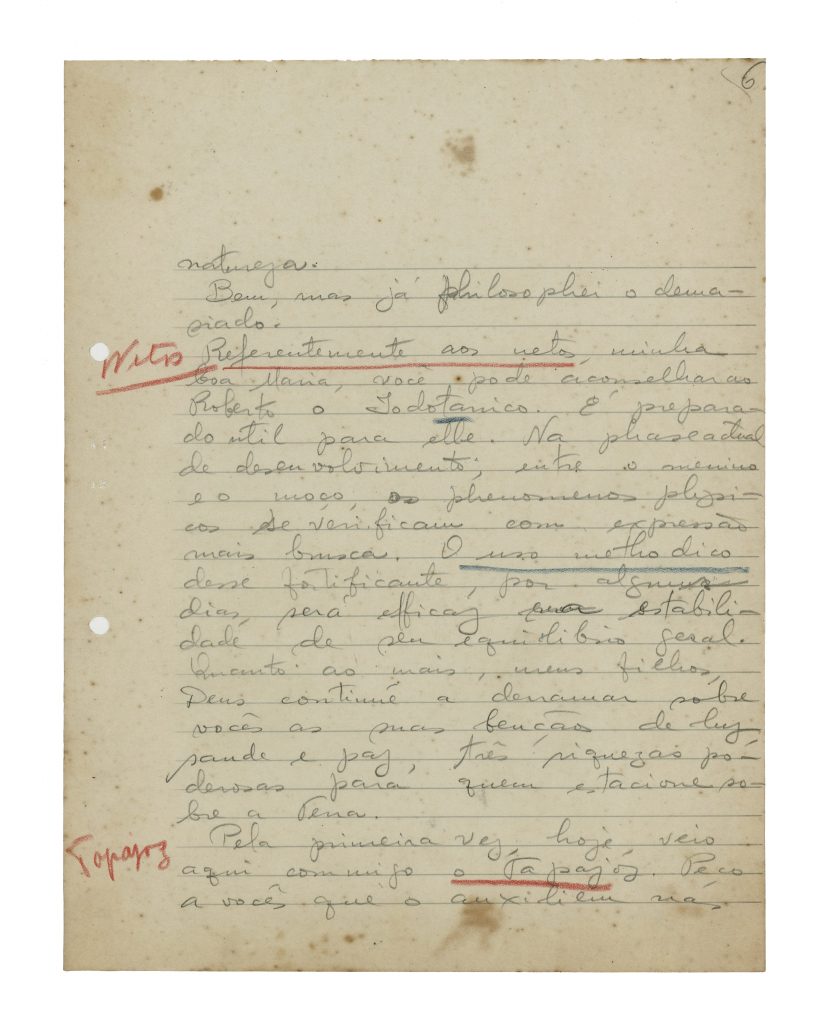 6
natureza.
Bem, mas já philosophei o dema-
siado.
Netos Referentemente aos netos, minha
boa Maria, você póde aconselhar ao
Roberto o Iodotanico. É prepara-
do util para elle. Na phase actual
de desenvolvimento, entre o menino
e o moço, os phenomenos physi-
cos se verificam com expressão
mais brusca. O uso methodico
desse fortificante, por alguns
dias, será efficaz estabili-
dade de seu equilibrio geral.
Quanto ao mais, meus filhos,
Deus continúe a derramar sôbre
vocês as suas bençãos de luz
saude e paz, três riquezas po-
derosas para quem estacione so-
bre a Terra.
Pela primeira vez, hoje, veio
Tapajoz
aqui commigo o Tapajóz. Peço
a vocês que o auxiliem nas